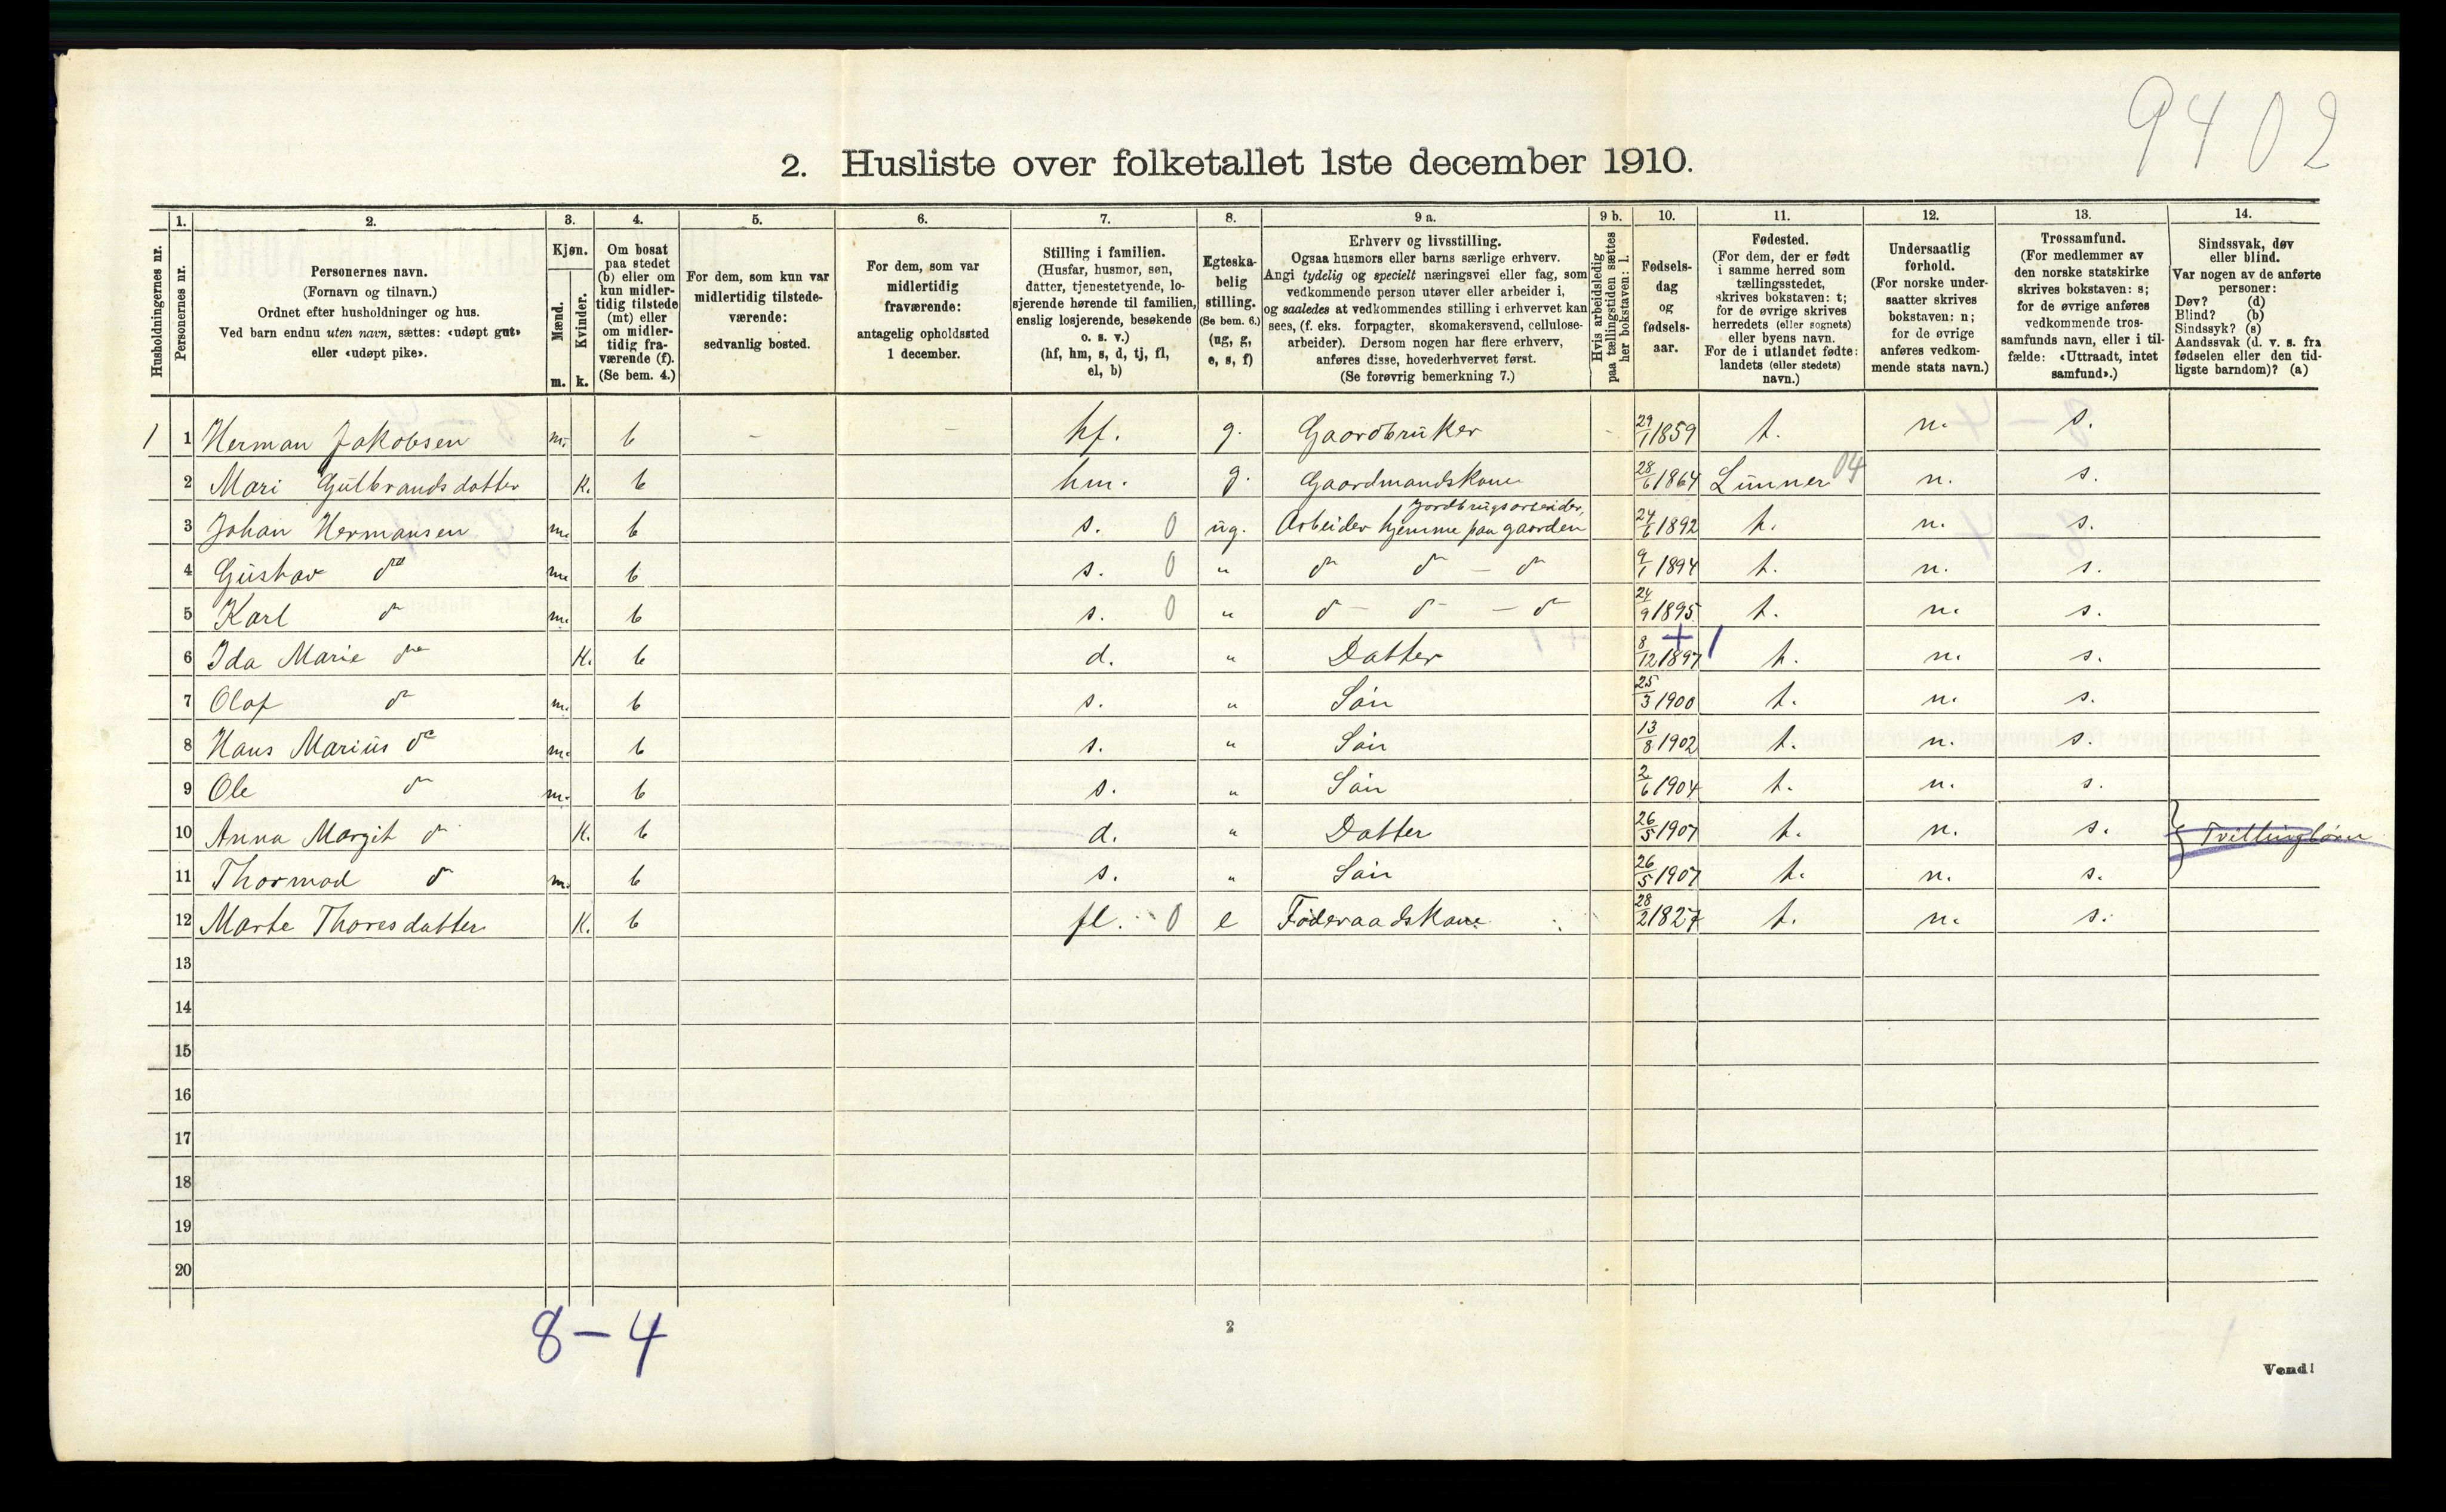 9402
2. Husliste over folketallet 1ste december 1910.
Husholdningernes nr.
1.
Personernes nr.
2.
Personernes navn.
(Fornavn og tilnavn.)
Ordnet efter husholdninger og hus.
Ved barn endnu uten navn, sættes: «udøpt gut»
eller «udøpt pike».
3.
Kjøn.
Mænd.
Kvinder.
m. k.
4.
Om bosat
paa stedet
(b) eller om
kun midler-
tidig tilstede
(mt) eller
om midler-
tidig fra-
værende (f).
(Se bem. 4.)
5.
For dem, som kun var
midlertidig tilstede-
værende:
sedvanlig bosted.
6.
For dem, som var
midlertidig
fraværende:
antagelig opholdssted
1 december.
7.
Stilling i familien.
(Husfar, husmor, søn,
datter, tjenestetyende, lo-
sjerende hørende til familien,
enslig losjerende, besøkende
o. s. v.)
(hf, hm, s, d, tj, fl,
el, b)
8.
Egteska-
belig
stilling.
(Se bem. 6.)
(ug, g,
e, s, f)
9 a.
Erhverv og livsstilling.
Ogsaa husmors eller barns særlige erhverv.
Angi tydelig og specielt næringsvei eller fag, som
vedkommende person utøver eller arbeider i,
og saaledes at vedkommendes stilling i erhvervet kan
sees, (f. eks. forpagter, skomakersvend, cellulose-
arbeider). Dersom nogen har flere erhverv,
anføres disse, hovederhvervet først.
(Se forøvrig bemerkning 7.)
9 b.
Hvis arbeidsledig
paa tællingstiden sættes
her bokstaven: l.
10.
Fødsels-
dag
og
fødsels-
aar.
11.
Fødested.
(For dem, der er født
i samme herred som
tællingsstedet,
skrives bokstaven: t;
for de øvrige skrives
herredets (eller sognets)
eller byens navn.
For de i utlandet fødte:
landets (eller stedets)
navn.)
12.
Undersaatlig
forhold.
(For norske under-
saatter skrives
bokstaven: n;
for de øvrige
anføres vedkom-
mende stats navn.)
13.
Trossamfund.
(For medlemmer av
den norske statskirke
skrives bokstaven: s;
for de øvrige anføres
vedkommende tros-
samfunds navn, eller i til-
fælde: «Uttraadt, intet
samfund».)
14.
Sindssvak, døv
eller blind.
Var nogen av de anførte
personer:
Døv? (d)
Blind? (b)
Sindssyk? (s)
Aandssvak (d. v. s. fra
fødselen eller den tid-
ligste barndom)? (a)
1 1 Herman Jakobsen m. b - - hf. g. Gaardbruker - 29/1 1859 t. n. s.
2 Mari Gulbrandsdatter k. b hm. g. Gaardmandskone 28/6 1864 Lunner 04 n. s.
3 Johan Hermansen m. b s. 0 ug. Arbeider hjemme paa gaarden Jordbrugsarbeider, 24/6 1892 t. n. s.
4 Gustav do m. b s. 0 " do do - do 9/1 1894 t. n. s.
5 Karl do m. b s. 0 " do - do - do 24/9 1895 t. n. s.
6 Ida Marie do k. b d. " Datter 8/12 1897 + 1 t. n. s.
7 Olaf do m. b s. " Søn 25/3 1900 t. n. s.
8 Hans Marius do m. b s. " Søn 13/8 1902 t. n. s.
9 Ole do m. b s. " Søn 2/6 1904 t. n. s.
10 Anna Margit do k. b d. " Datter 26/5 1907 t. n. s. } Tvillingbørn
11 Thormod do m. b s. " Søn 26/5 1907 t. n. s.
12 Marte Thoresdatter k. b fl. 0 e Føderaadskone 28/2 1827 t. n. s.
13
14
15
16
17
18
19
20
8-4
2
Vend!